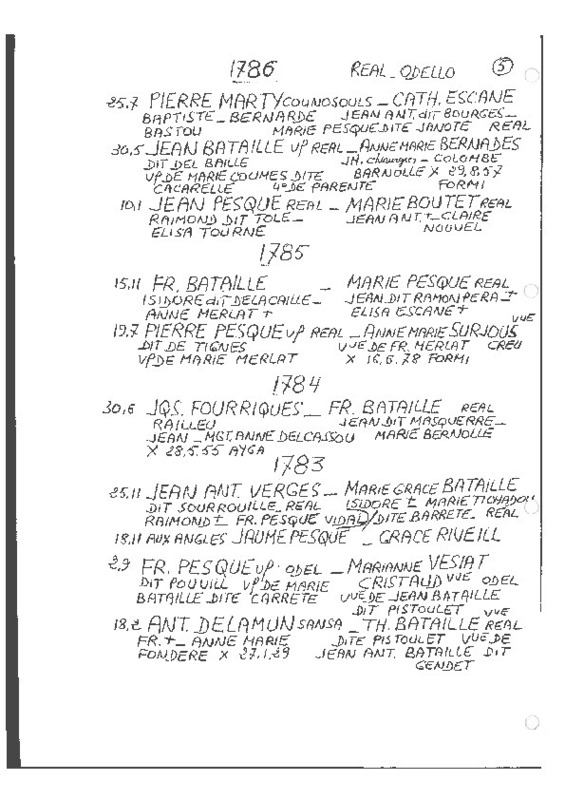 1786 REAL - ODELLO 5
25,7 PIERRE MARTY COUNOSOULS - CATH. ESCANE
BAPTISTE - BERNARDE JEAN ANT. dit BOURGES -
BASTOU MARIE PESQUE DITE JANOTE REAL
30,5 JEAN BATAILLE VP REAL - ANNE MARIE BERNADES
DIT DEL BAILLE JH. chirurgien - COLOMBE
VP DE MARIE COUMES DITE BARNOLLE X 29,8,57
CACARELLE 4° DE PARENTE FORMI
10,1 JEAN PESQUE REAL - MARIE BOUTET REAL
RAIMOND DIT TOLE - JEAN ANT. + - CLAIRE
ELISA TOURNE NOUVEL
1785
15,11 FR. BATAILLE - MARIE PESQUE REAL
ISIDORE dit DELACAILLE - JEAN DIT RAMON PERA +
ANNE MERLAT + ELISA ESCANE +
19,7 PIERRE PESQUE VP REAL - ANNE MARIE SURJOUS VUE
DIT DE TIGNES VUE DE FR. MERLAT CREU
VP DE MARIE MERLAT X 16,6,78 FORMI
1784
30,6 JQS. FOURRIQUES - FR. BATAILLE REAL
RAILLEU JEAN DIT MASQUERRE -
JEAN - MGT. ANNE DELCASSOU MARIE BERNOLLE
X 28,5,55 AYGA
1783
25,11 JEAN ANT. VERGES - MARIE GRACE BATAILLE
DIT SOURROUILLE REAL ISIDORE + MARIE TICHADOU
RAIMOND + FR. PESQUE VIDAL / DITE BARRETE - REAL
18,11 AUX ANGLES JAUME PESQUE - GRACE RIVEILL
2,9 FR. PESQUE VP ODEL - MARIANNE VESIAT
DIT POUVILL VP DE MARIE CRISTAUD VUE ODEL
BATAILLE DITE CARRETE VUE DE JEAN BATAILLE
DIT PISTOULET VUE
18,2 ANT. DELAMUN SANSA - TH. BATAILLE REAL
FR. + - ANNE MARIE DITE PISTOULET VUE DE
FONDERE X 27.1.29 JEAN ANT. BATAILLE DIT
GENDET